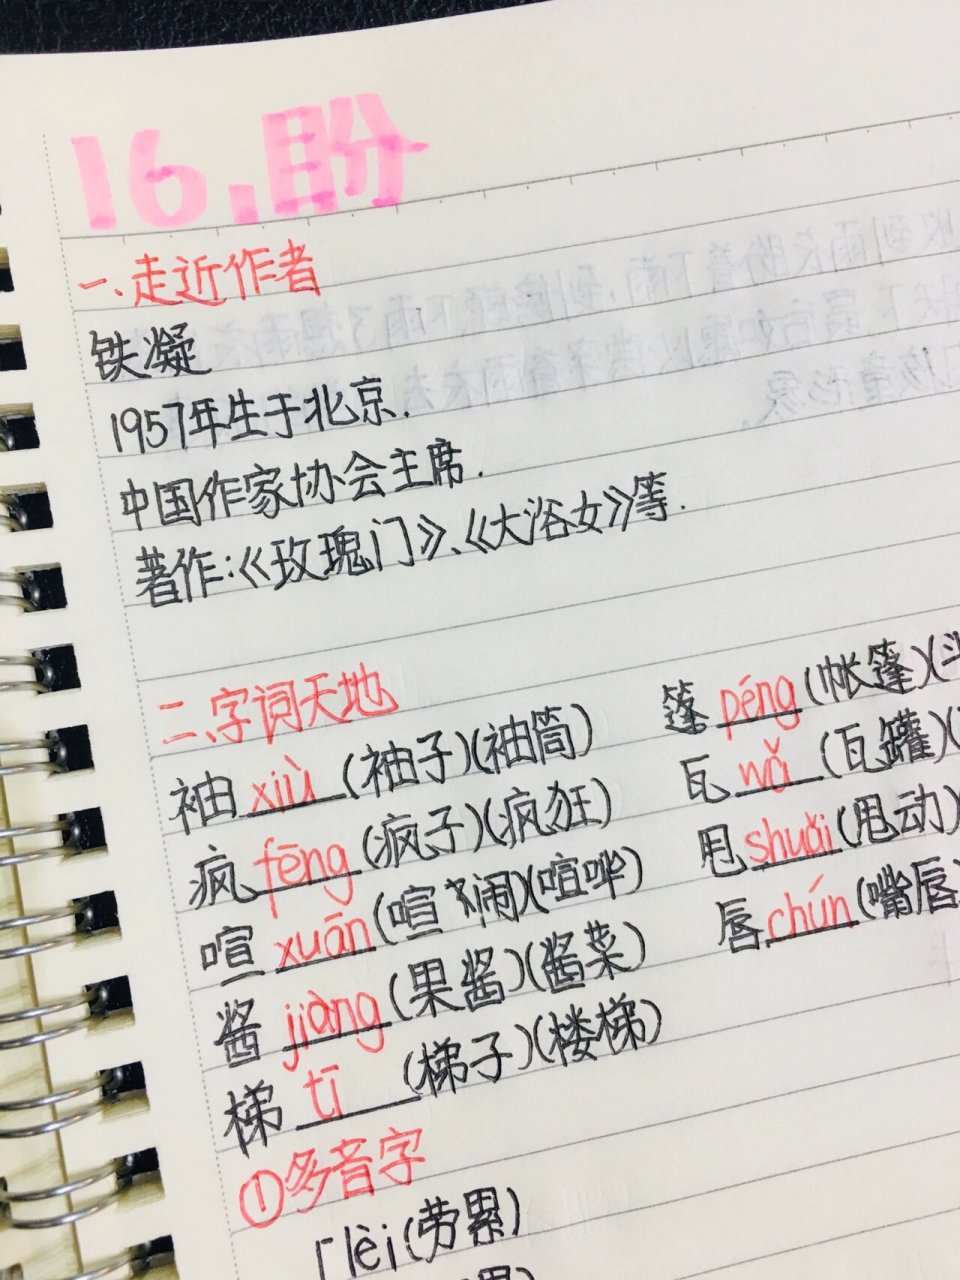 16.盼
一.走近作者
铁凝
1957年生于北京.
中国作家协会主席.
著作:《玫瑰门》、《大浴女》等.
二、字词天地
袖 xiù (袖子)(袖筒) 篷 péng (帐篷)
疯 fēng (疯子)(疯狂) 瓦 wǎ (瓦罐)
喧 xuān (喧闹)(喧哗) 甩 shuǎi (甩动)
酱 jiàng (果酱)(酱菜) 唇 chún (嘴唇)
梯 tī (梯子)(楼梯)
①多音字
lèi (劳累)